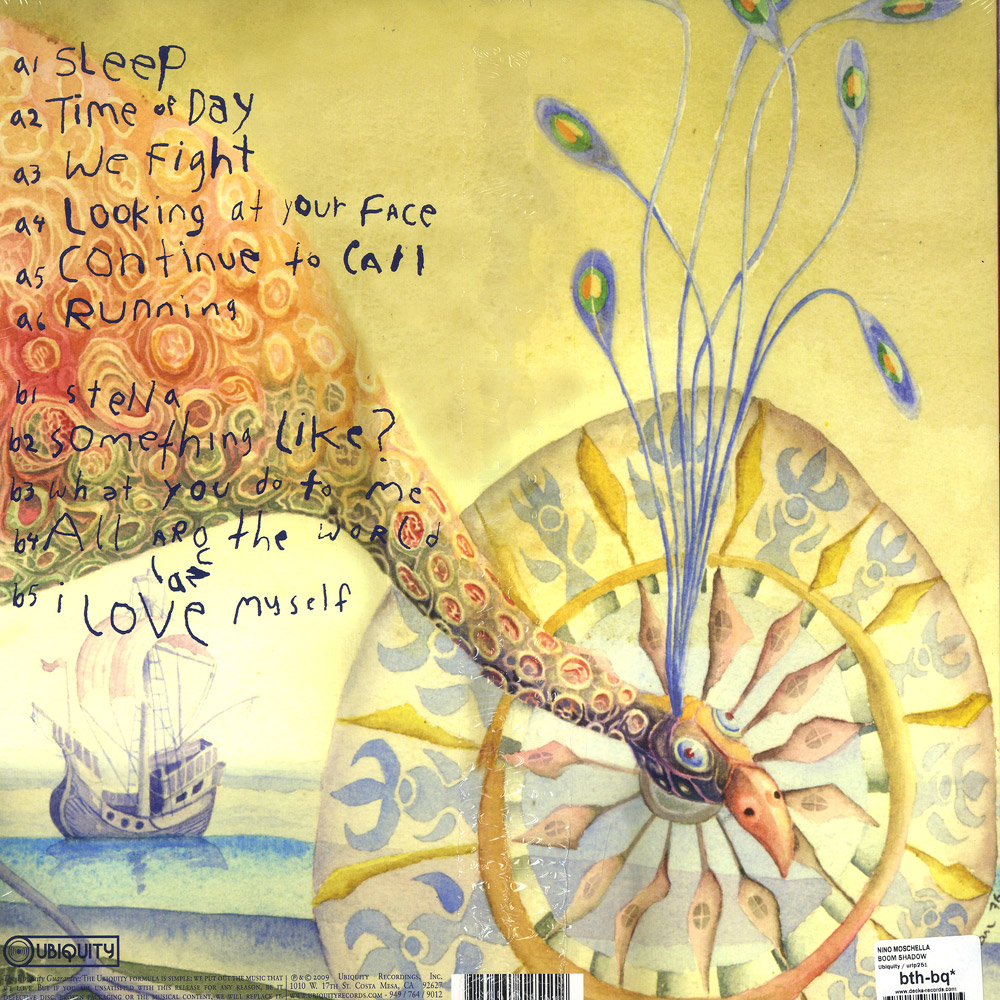 a1 SLeep
a2 Time of Day
a3 We Fight
a4 Looking at your FACE
a5 Continue to CAll
a6 RUnning
b1 stella
b2 something like?
b3 what you do to me
b4 All ARO the woRLd
b5 i LOVE myself
UBIQUITY
Guarantee: The Ubiquity formula is simple: we put out the music that
we love. But if you are unsatisfied with this release for any reason, be it
defective disc, packaging or the musical content, we will replace
℗ & © 2009 Ubiquity Recordings, Inc.
1010 W. 17th St. Costa Mesa, CA 92627
www.ubiquityrecords.com - 949 / 764 / 9012
NINO MOSCHELLA
BOOM SHADOW
Ubiquity / urlp251
bth-bq*
www.decks-records.com